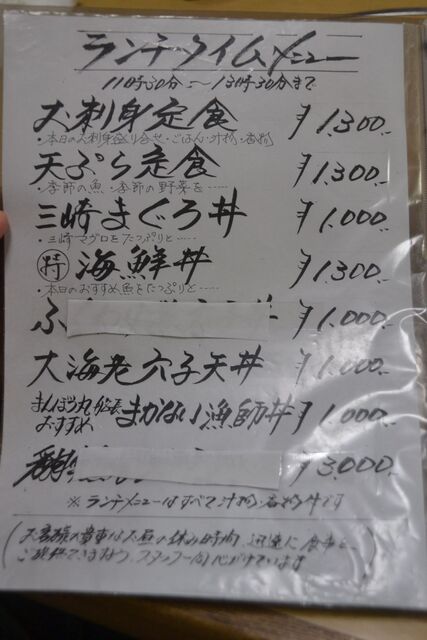 ランチタイムメニュー
11時30分〜13時30分まで
お刺身定食 ¥1,300.-
・本日のお刺身盛り合せ・ごはん・汁物・香物
天ぷら定食 ¥1,300.-
・季節の魚・季節の野菜を……
三崎まぐろ丼 ¥1,000.-
・三崎マグロをたっぷりと……
特 海鮮丼 ¥1,300.-
・本日のおすすめ魚をたっぷりと……
ふ 丼 ¥1,000.-
大海老穴子天丼 ¥1,000.-
まんぼう丸船長おすすめ まかない漁師丼 ¥1,000.-
¥3,000.-
※ランチメニューはすべて汁物・香物付です
(お客様の貴重なお昼の休み時間、迅速に食事を
ご提供できますよう、スタッフ一同心がけています)